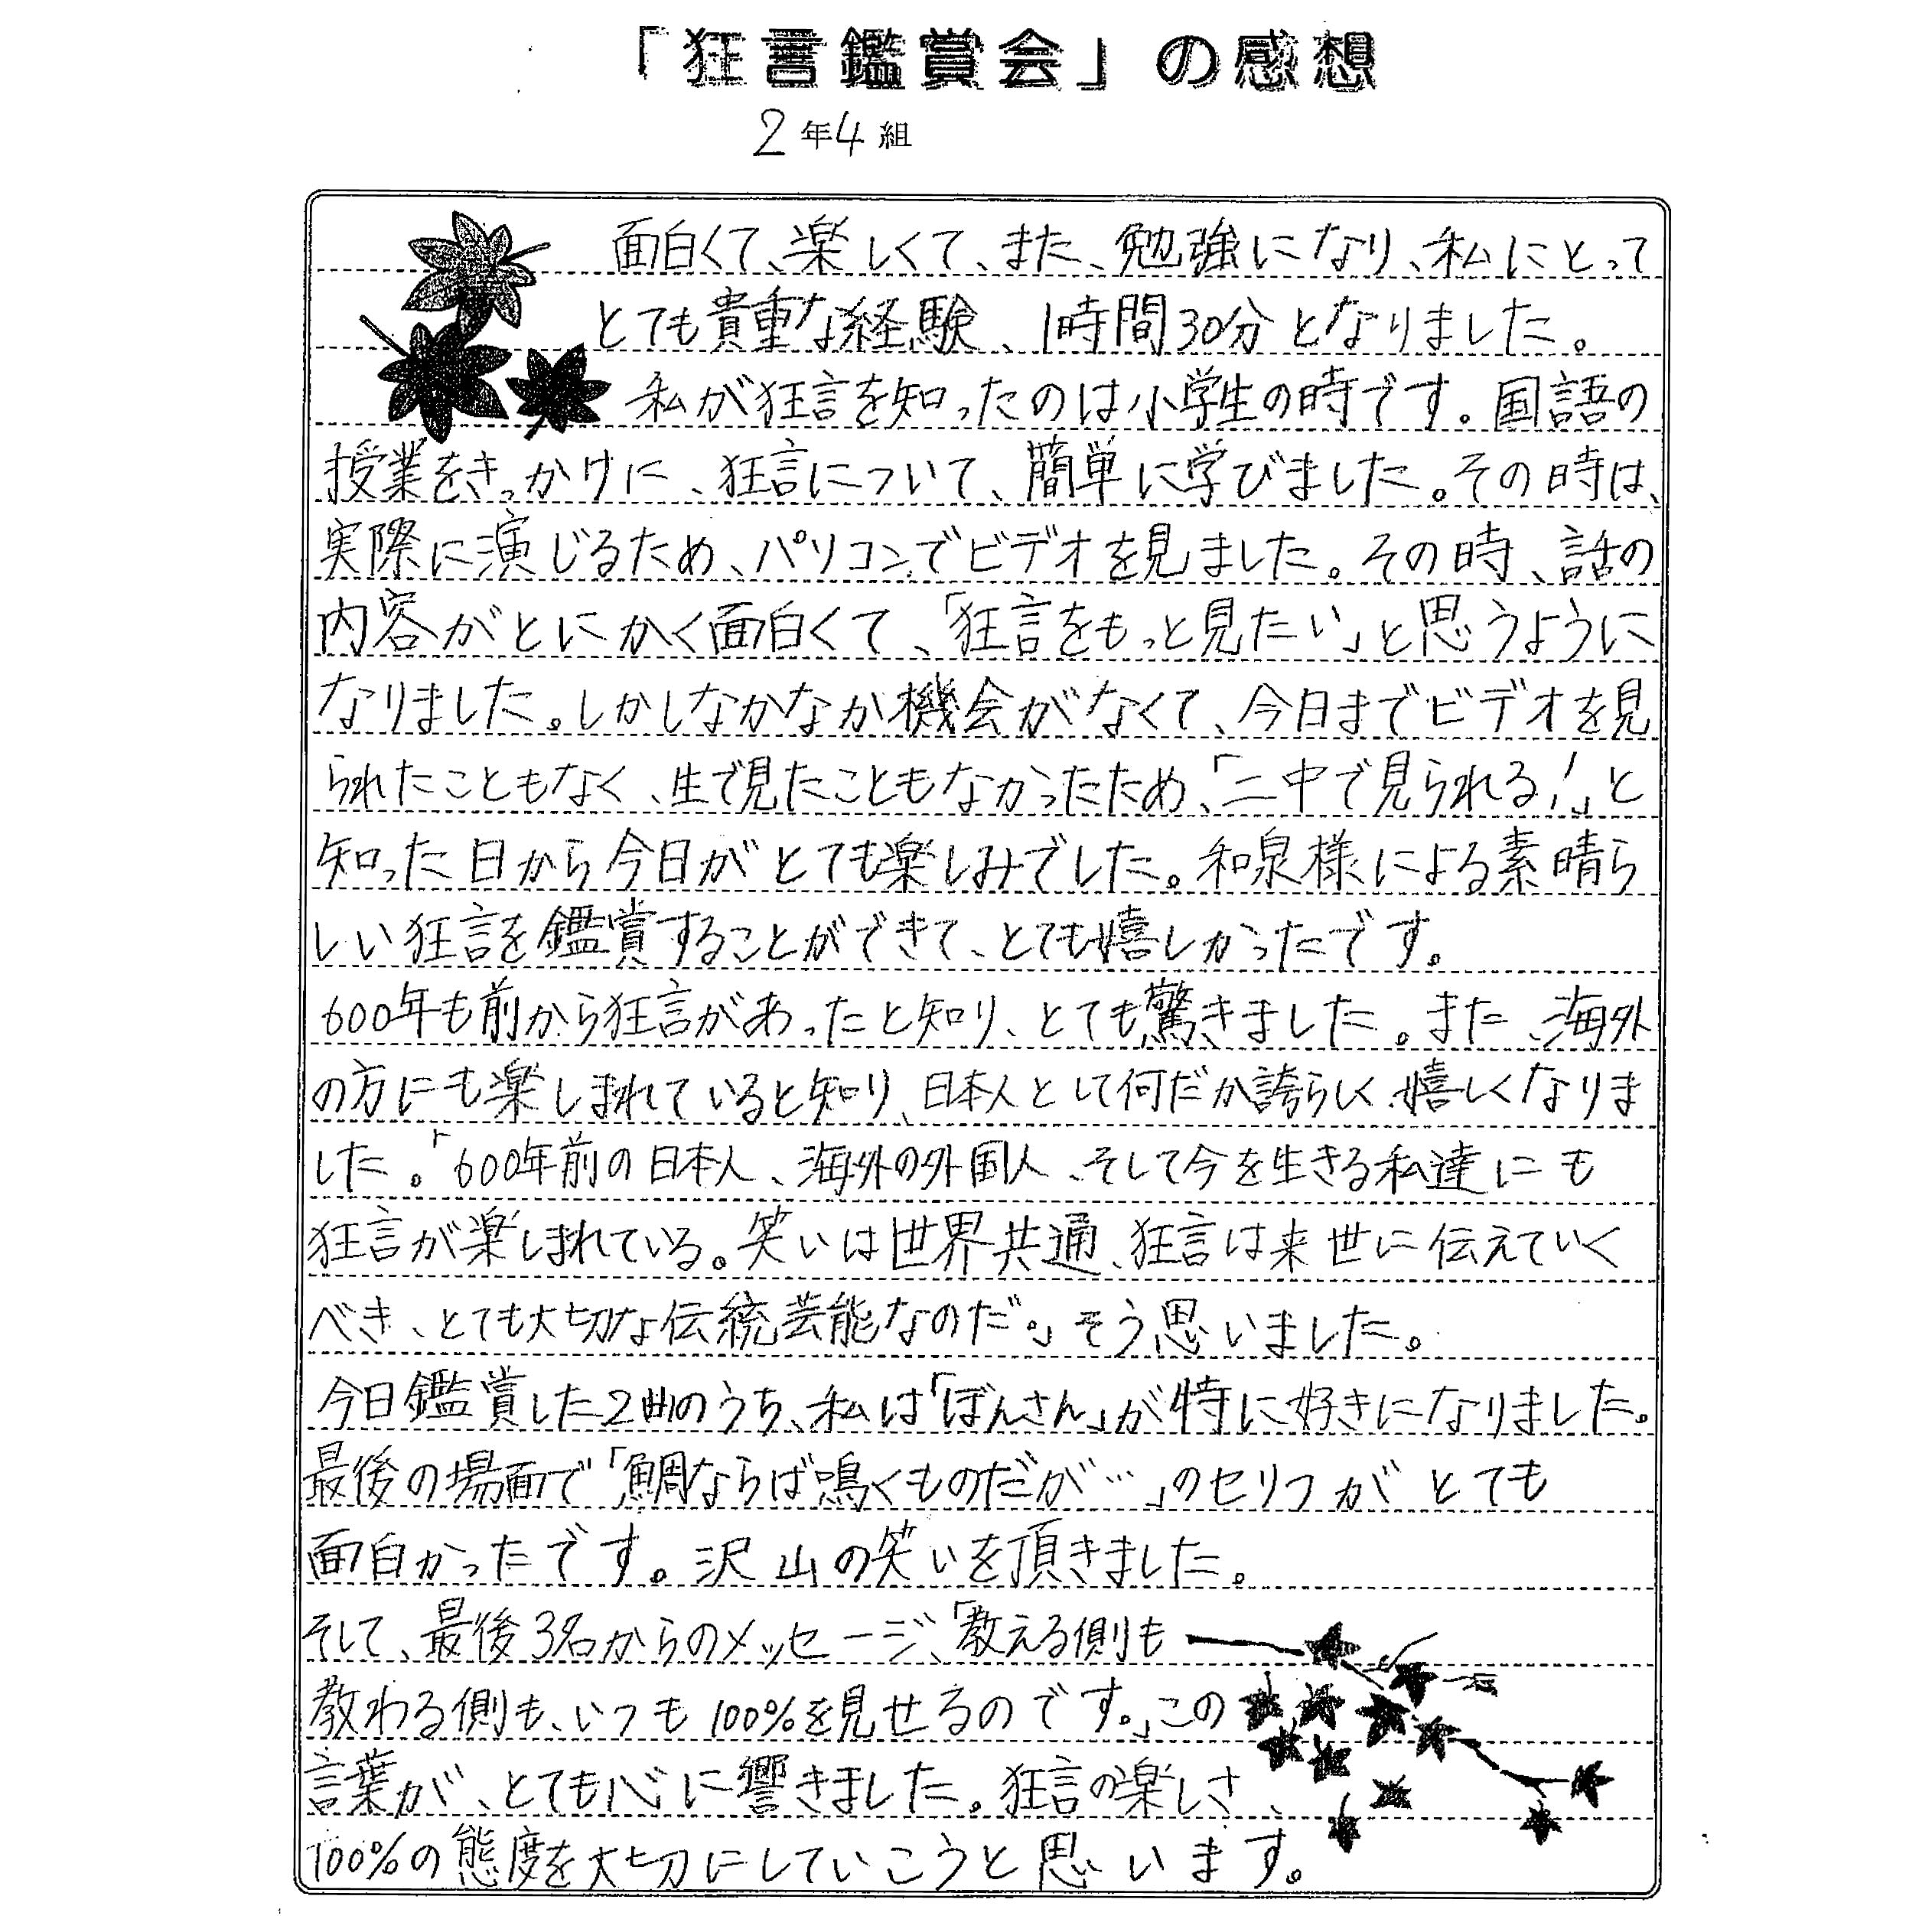 「狂言鑑賞会」の感想
2年4組
面白くて、楽しくて、また、勉強になり、私にとって
とても貴重な経験、1時間30分となりました。
私が狂言を知ったのは小学生の時です。国語の
授業をきっかけに、狂言について、簡単に学びました。その時は、
実際に演じるため、パソコンでビデオを見ました。その時、話の
内容がとにかく面白くて、「狂言をもっと見たい」と思うように
なりました。しかしなかなか機会がなくて、今日までビデオを見
られたこともなく、生で見たこともなかったため、「二中で見られる!」と
知った日から今日がとても楽しみでした。和泉様による素晴ら
しい狂言を鑑賞することができて、とても嬉しかったです。
600年も前から狂言があったと知り、とても驚きました。また、海外
の方にも楽しまれていると知り、日本人として何だか誇らしく、嬉しくなりま
した。「600年前の日本人、海外の外国人、そして今を生きる私達にも
狂言が楽しまれている。笑いは世界共通、狂言は来世に伝えていく
べき、とても大切な伝統芸能なのだ。」そう思いました。
今日鑑賞した2曲のうち、私は「ぼんさん」が特に好きになりました。
最後の場面で「鯛ならば鳴くものだが…」のセリフがとても
面白かったです。沢山の笑いを頂きました。
そして、最後3名からのメッセージ、「教える側も
教わる側も、いつも100%を見せるのです。」この
言葉が、とても心に響きました。狂言の楽しさ、
100%の態度を大切にしていこうと思います。